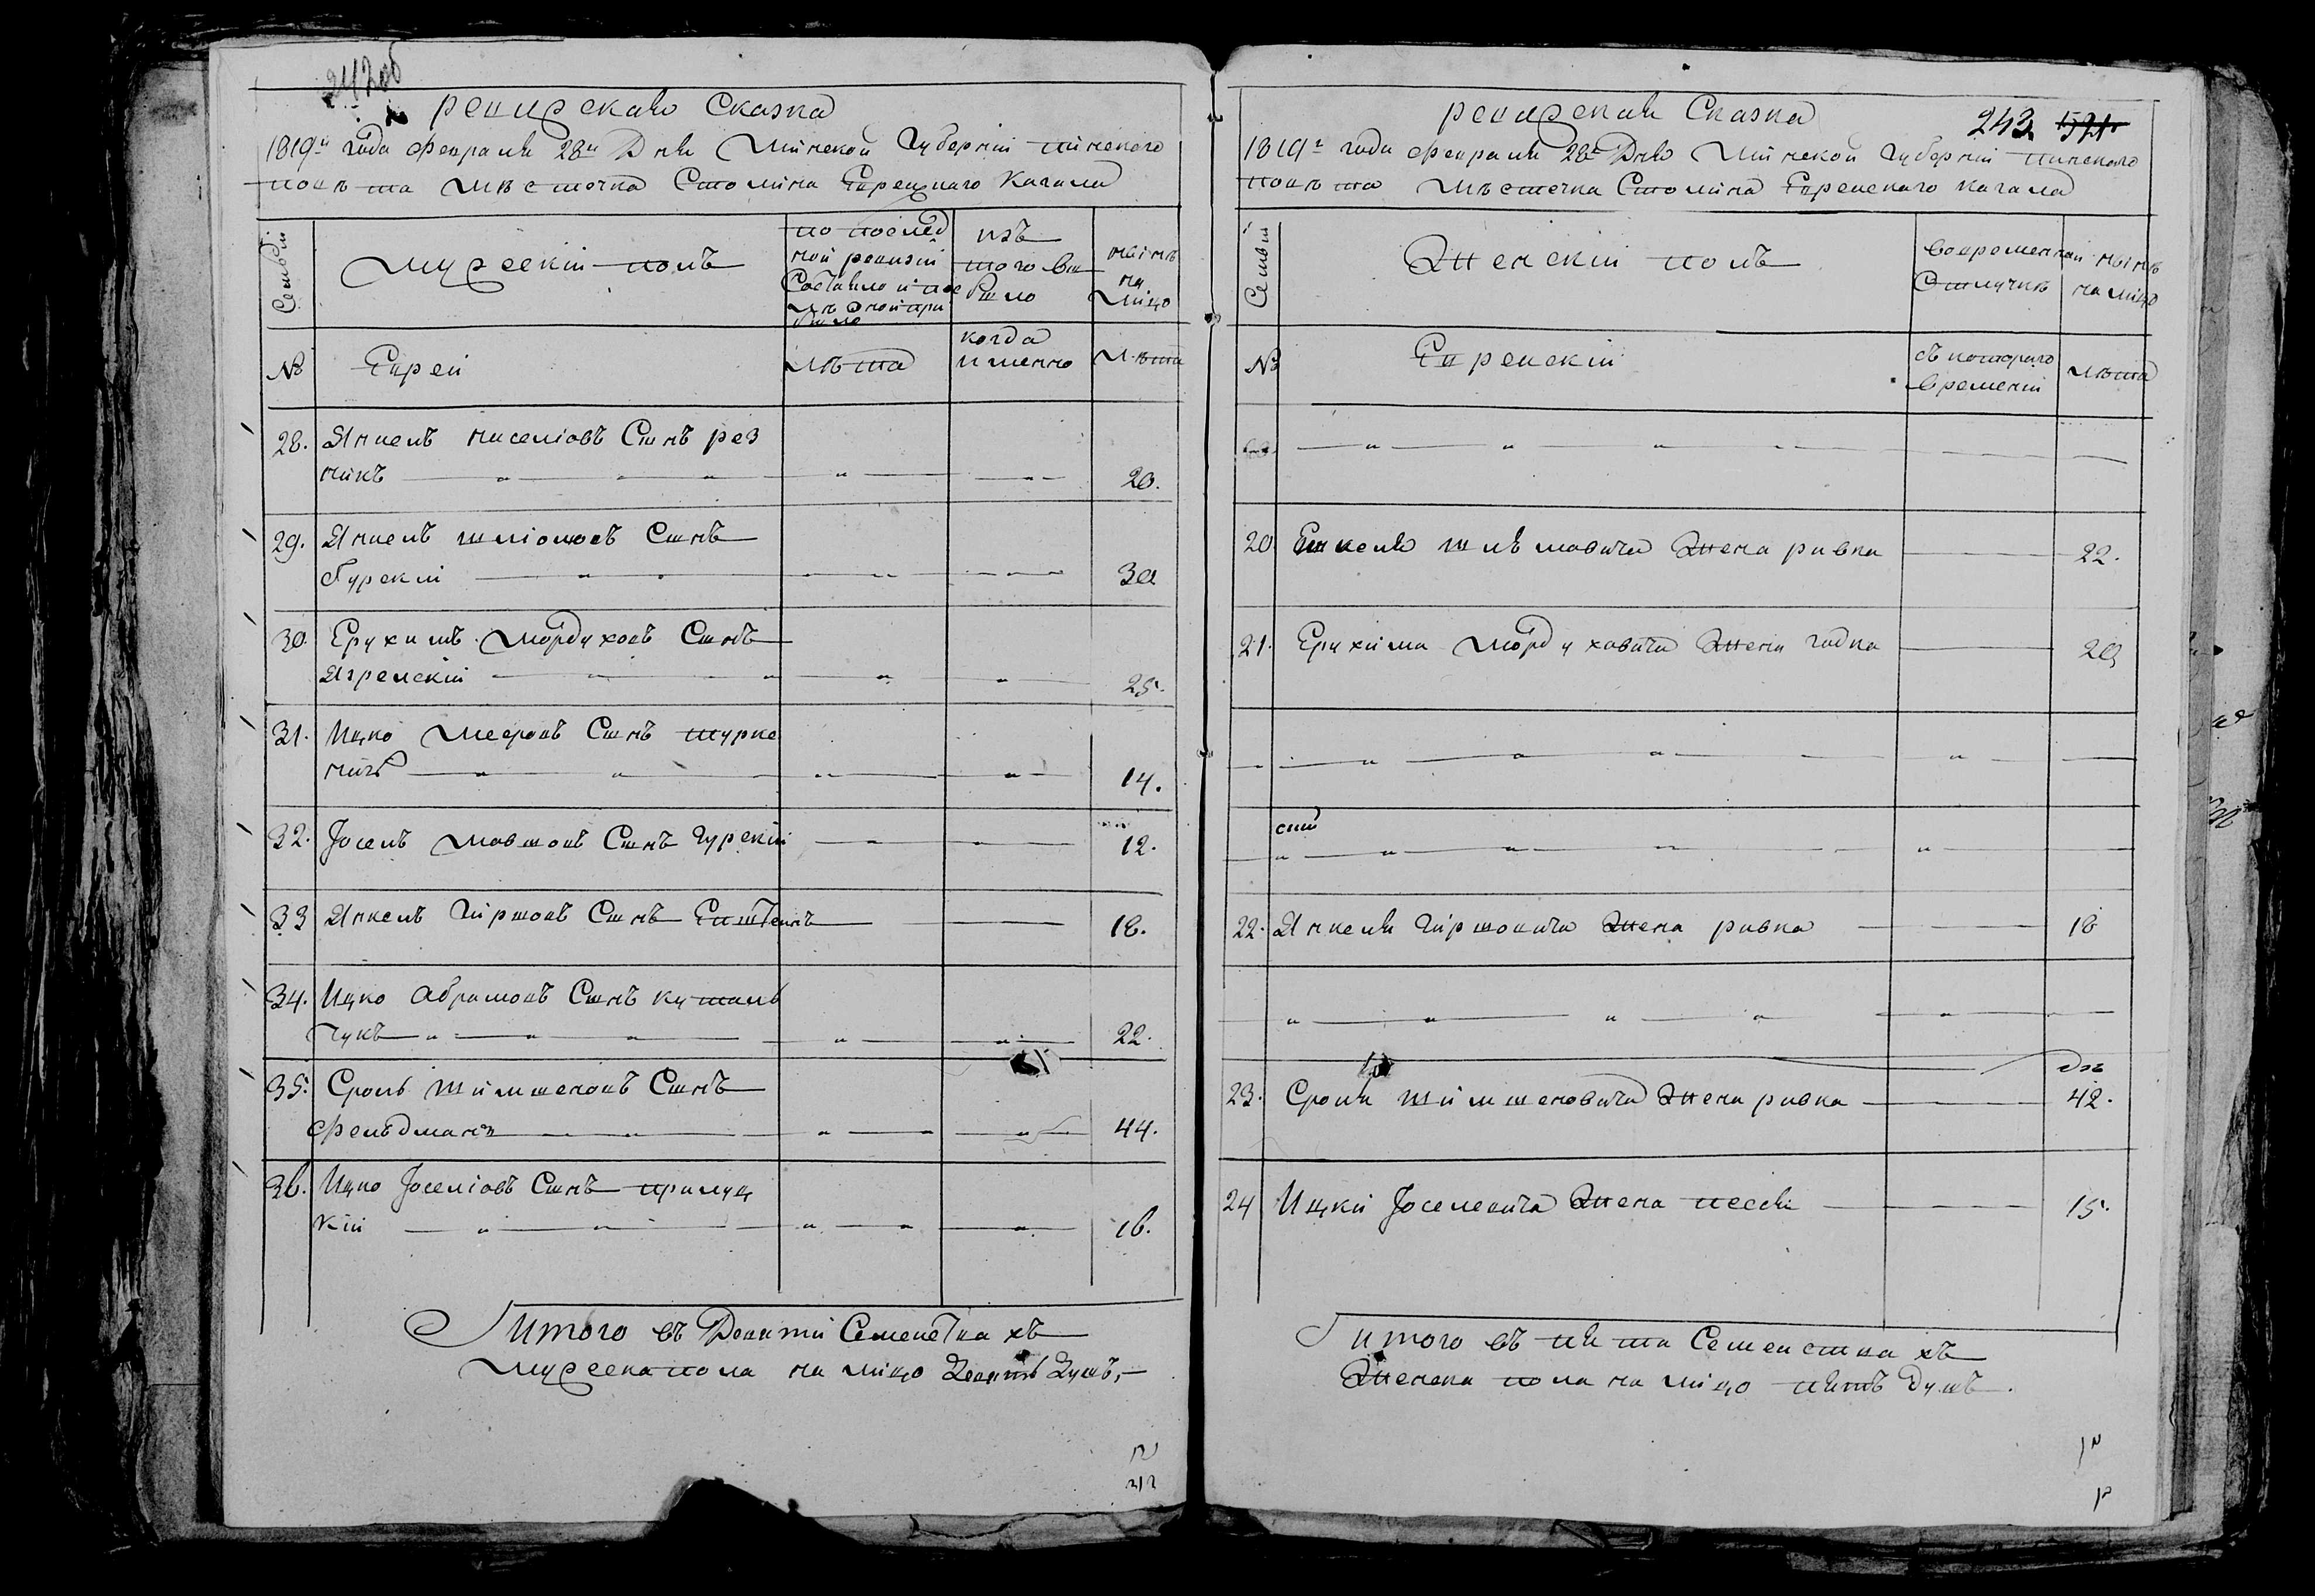 242об
ревизскаю Сказка
1819го года февраля 28го Дня Минской Губерніи пинского
повѣта мѣстечка Столина Еврейского Кагала
Семьи
мужескій полъ
по послед
ней ревизіи
Состояло и пос
лѣ оной при
было
изъ
того вы
было
нынѣ
на
лицо
№
Евреи
лѣта
когда
именно
лѣта
28. Янкель киселіовъ Сынъ рез
никъ 20.
29. Янкель шліомовъ Сынъ
Гурскій 30
30. Ерухимъ Мордуховъ Сынъ
Язрелскій 25.
31. Ицко Мееровъ Сынъ турке
ничъ 14.
32. Іосель Мовшовъ Сынъ Гурскій 12.
33 Янкель Гиршовъ Сынъ Епштейнъ 18.
34. Ицко Абрамовъ Сынъ Куталь
чукъ 22.
35. Сроль шимшеновъ Сынъ
фельдманъ 44.
36. Ицко Іоселіовъ Сынъ прилуц
кій 16.
Итого въ Девяти Семействахъ
мужеска пола на лицо Девять Душъ,
243 571
ревизская Сказка
1819го года февраля 28го Дня Минской Губерніи пинскаго
повѣта мѣстечка Столина Еврейскаго Кагала
Семьи
Женскій полъ
во временной
Отлучкѣ
нынѣ
на лицо
№
Еврейскій
съ котораго
времени
лѣта
20 Янкеля шлѣмовича Жена ривка 22.
21. Ерухима Мордуховича Жена гадка 20
22. Янкеля Гиршовича Жена ривка 18
23. Сроля шимшеновича Жена ривка 42.
24 Ицки Іоселевича Жена песся 15.
Итого въ пяти Семействахъ
Женска пола на лицо пять душъ.